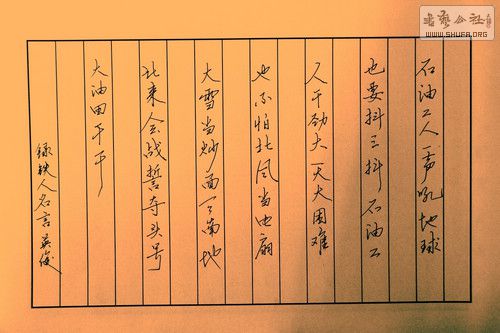 書藝公社
WWW.SHUFA.ORG
石油工人一声吼地球
也要抖三抖石油工
人干劲大天大困难
也不怕北风当电扇
大雪当炒面天南地
北来会战誓夺头号
大油田干干
録铁人名言英俊